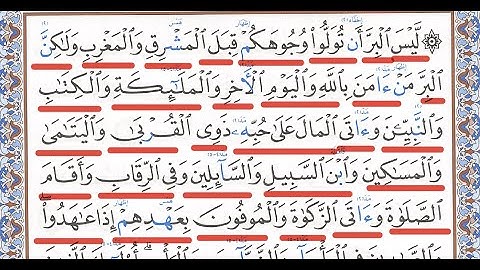 ۞ لَّيْسَ ٱلْبِرَّ أَن تُوَلُّوا۟ وُجُوهَكُمْ قِبَلَ ٱلْمَشْرِقِ وَٱلْمَغْرِبِ وَلَٰكِنَّ
ٱلْبِرَّ مَنْ ءَامَنَ بِٱللَّهِ وَٱلْيَوْمِ ٱلْءَاخِرِ وَٱلْمَلَٰٓئِكَةِ وَٱلْكِتَٰبِ
وَٱلنَّبِيِّـۧنَ وَءَاتَى ٱلْمَالَ عَلَىٰ حُبِّهِۦ ذَوِى ٱلْقُرْبَىٰ وَٱلْيَتَٰمَىٰ
وَٱلْمَسَٰكِينَ وَٱبْنَ ٱلسَّبِيلِ وَٱلسَّآئِلِينَ وَفِى ٱلرِّقَابِ وَأَقَامَ
ٱلصَّلَوٰةَ وَءَاتَى ٱلزَّكَوٰةَ وَٱلْمُوفُونَ بِعَهْدِهِمْ إِذَا عَٰهَدُوا۟